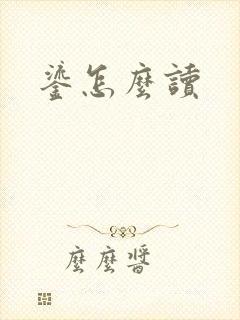 鎏怎麼讀
麼麼醬